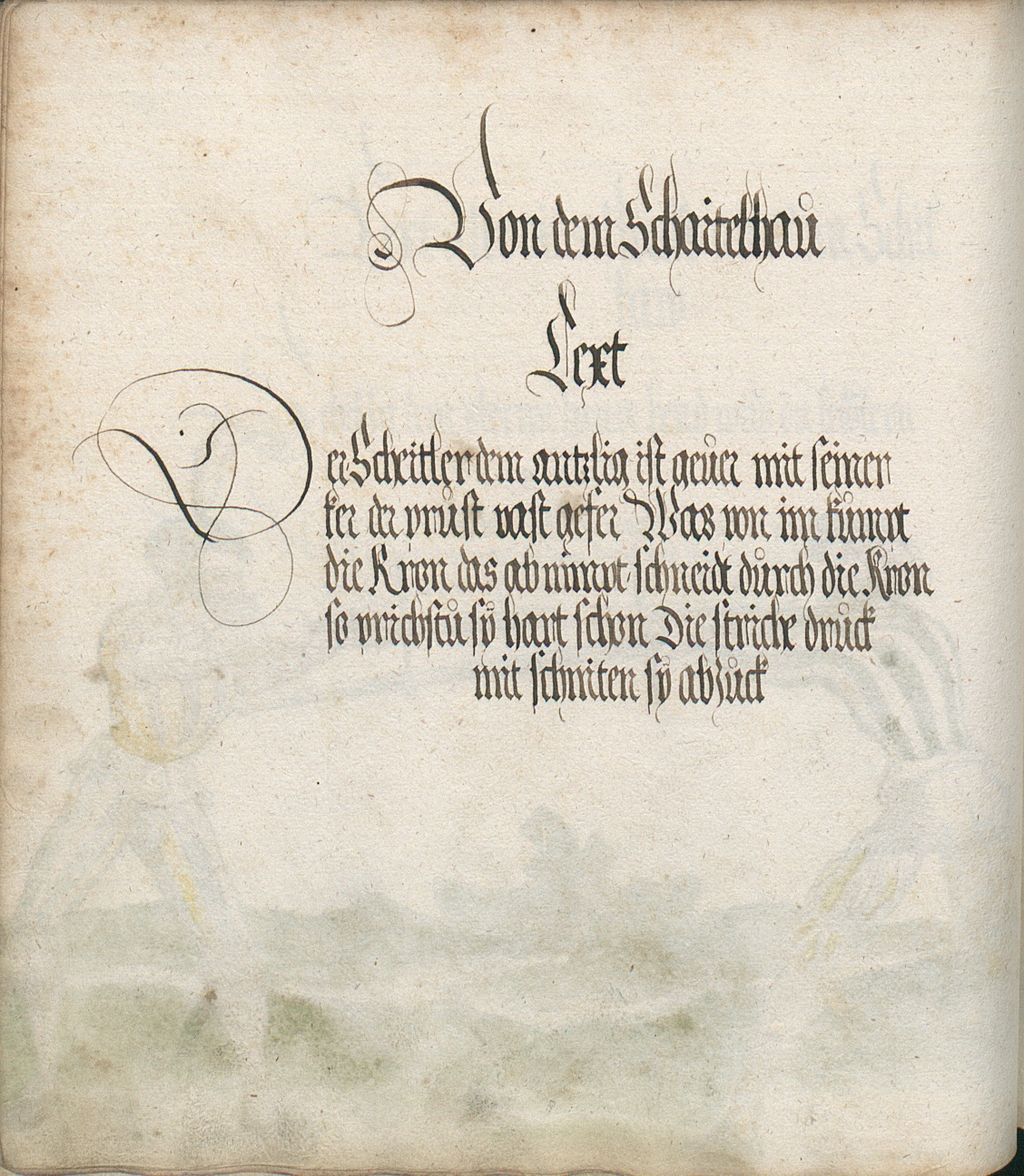 Von dem Schaitelhau
Text
Der Scheitler dem antzlig ist geuer mit seiner
ker der prust vast gefer Was von im kumpt
die Kron das ab nimpt schneidt durch die Kron
so prichstu sy hart schon Die striche druck
mit schniten sy abzuck